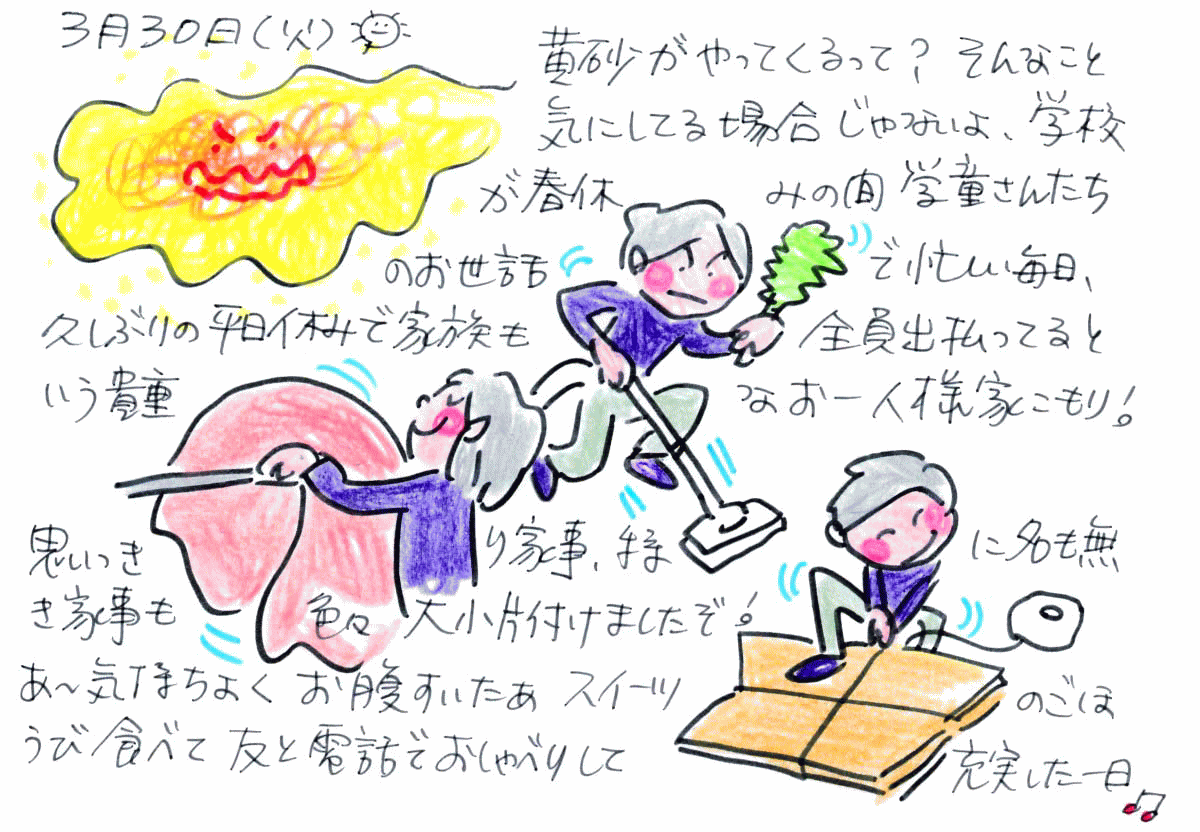 3月30日(火)
黄砂がやってくるって? そんなこと
気にしてる場合じゃないよ、学校
が春休みの間 学童さんたち
のお世話で忙しい毎日、
久しぶりの平日休みで家族も全員出払ってると
いう貴重なお一人様家こもり!
思いっきり家事、特に名も無
き家事も色々大小片付けましたぞ!
あ〜気持ちよくお腹すいたあ スイーツのごほ
うび食べて友と電話でおしゃべりして充実した一日